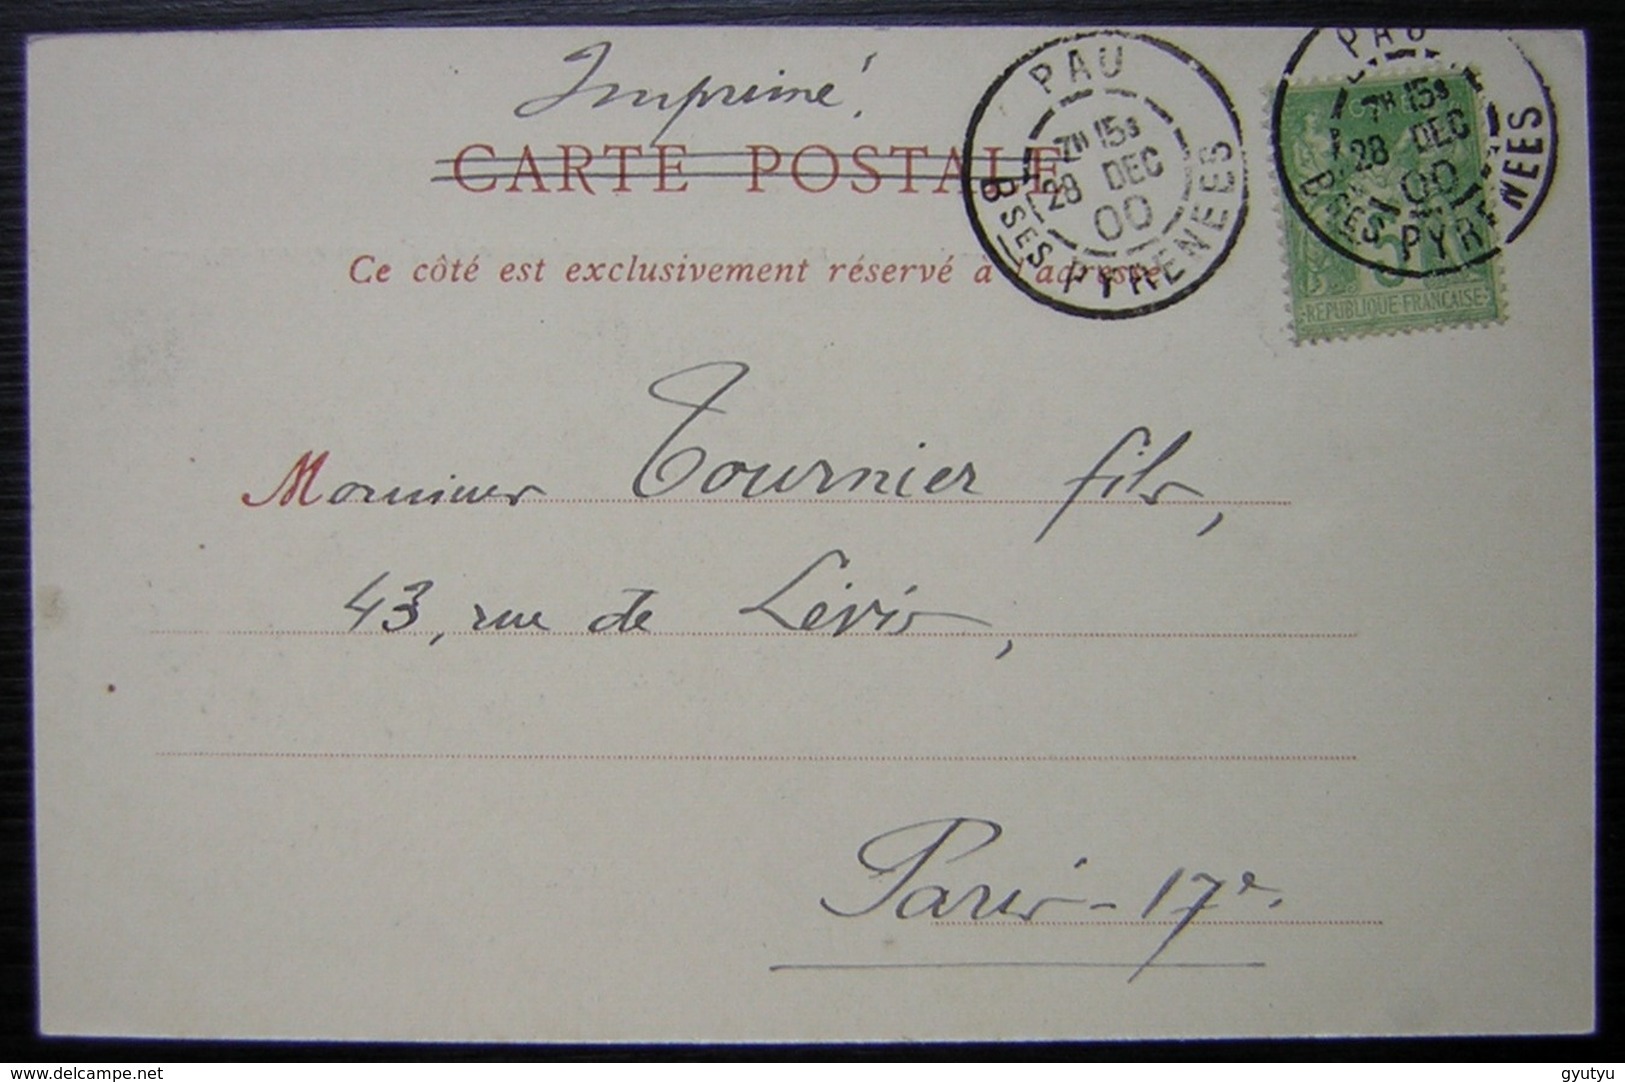 Imprimé.
CARTE POSTALE
Ce côté est exclusivement réservé à l'adresse
PAU
7H 15S
28 DEC
00
BSES PYRENEES
PAU
7H 15S
28 DEC
00
BSES PYRENEES
5
REPUBLIQUE FRANÇAISE
Monsieur Tournier fils,
43, rue de Lévis,
Paris - 17e.
delcampe.net
gyutyu